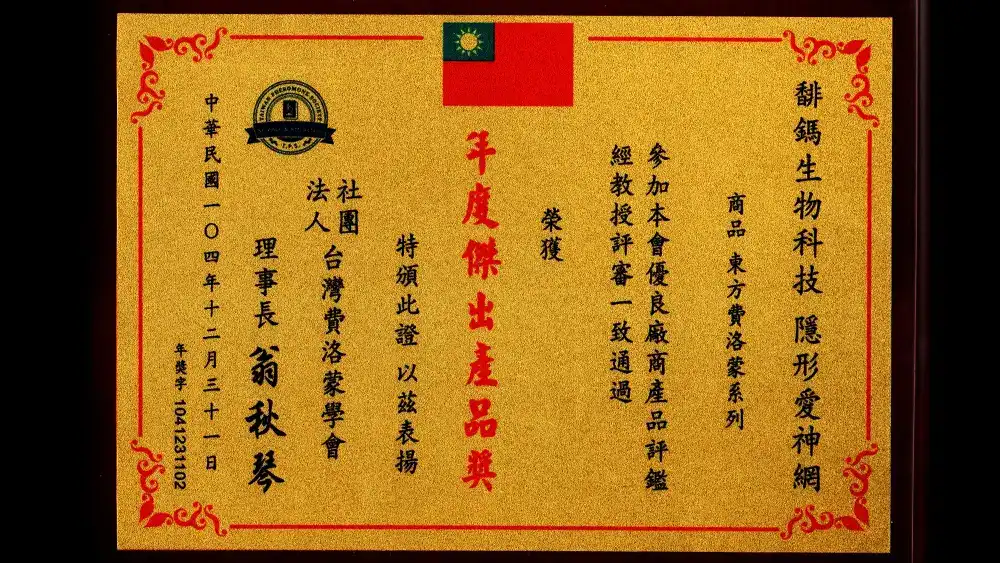 馡鎷生物科技 隱形愛神網
商品 東方費洛蒙系列
參加本會優良廠商產品評鑑
經教授評審一致通過
榮獲
年度傑出產品獎
特頒此證 以茲表揚
社團法人 台灣費洛蒙學會
理事長 翁秋琴
TAIWAN PHEROMONE SOCIETY
T.P.S.
中華民國一〇四年十二月三十一日
年獎字 1041231102